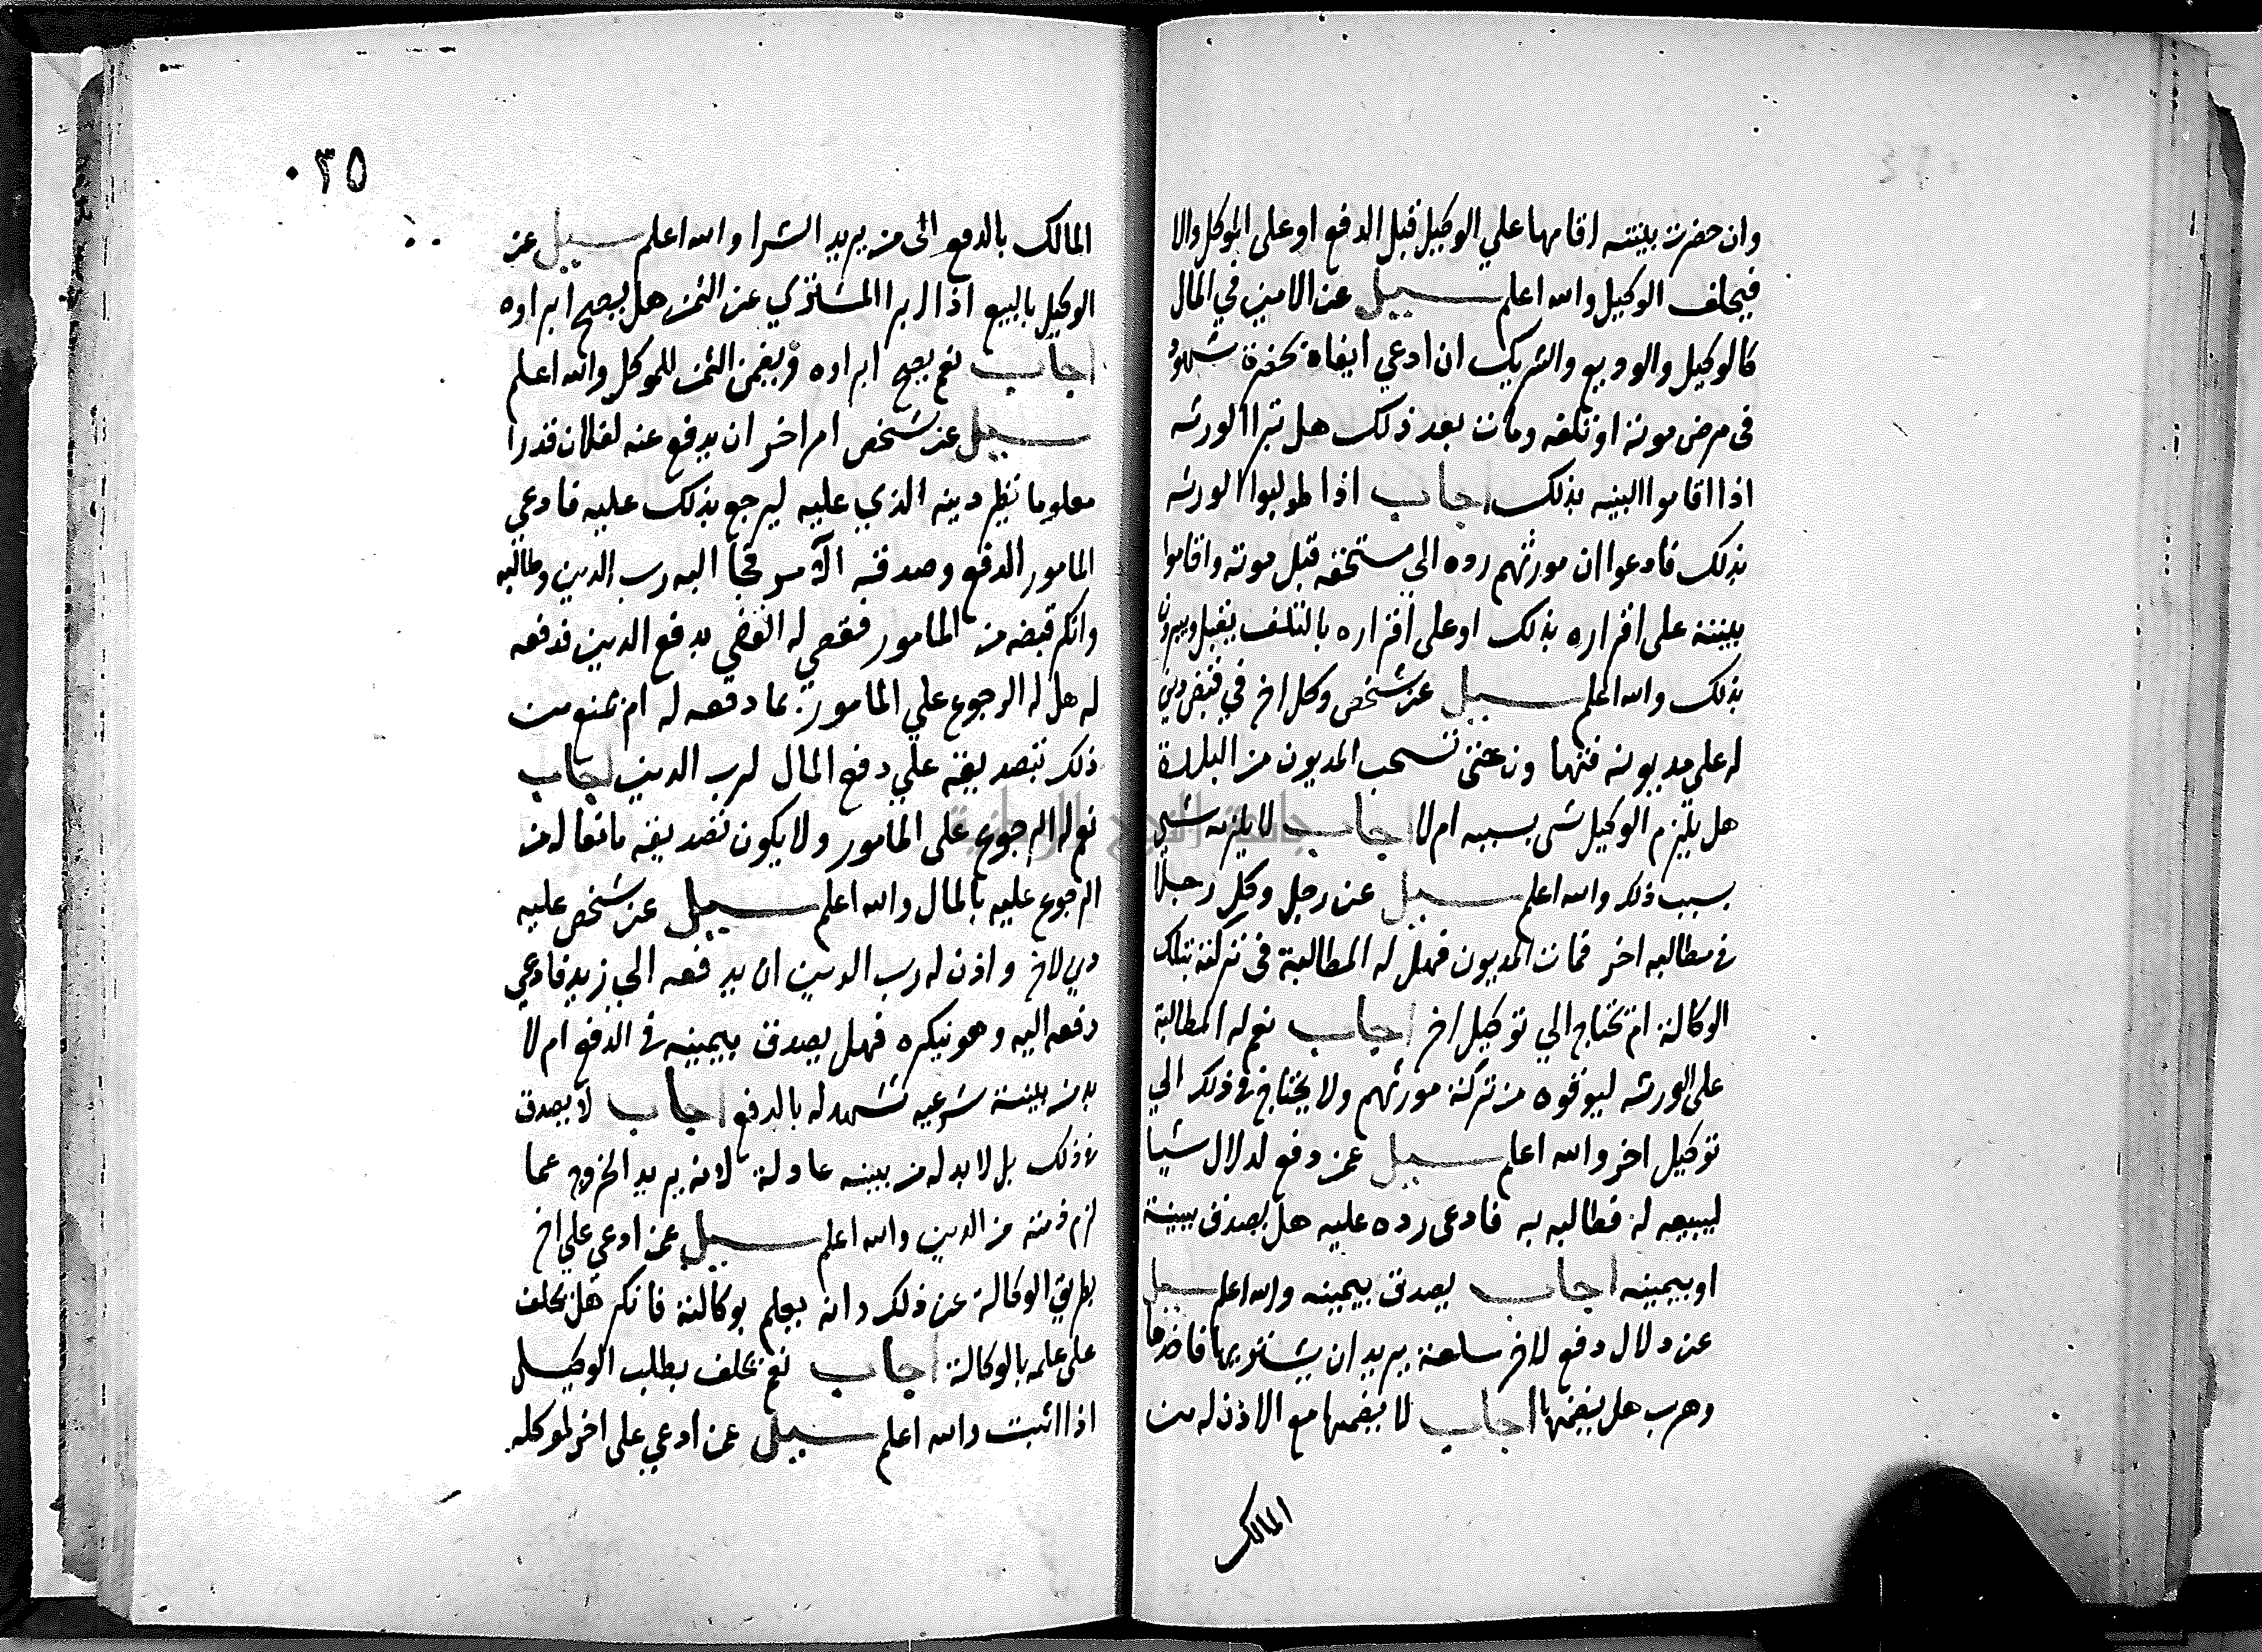 وان حضرت بينته اقامها علي الوكيل قبل الدفع او على الموكل والا
فيحلف الوكيل والله اعلم سيل عن الامين في المال
كالوكيل والوديع والشريك ان ادعي ايفاه بحضرة شهود
في مرض موته او تلفه ومات بعد ذلك هل تبرا الورثه
اذا اقاموا البينه بذلك اجاب اذا طولبوا الورثه
بذلك فادعوا ان مورثهم رده الي مستحقه قبل موته واقاموا
بينة على اقراره بذلك او على اقراره بالتلف يقبل ويبرون
بذلك والله اعلم سيل عن شخص وكل اخر في قبض دين
له على مديونه فتهاون حتى تسحب المديون من البلدة
هل يلزم الوكيل شي بسببه ام لا اجاب لا يلزمه شي
بسبب ذلك والله اعلم سيل عن رجل وكل رجلا
في مطالبه اخر فمات المديون فهل له المطالبة في تركته بتلك
الوكالة ام يحتاج الي توكيل اخر اجاب نعم له المطالبة
على الورثه ليوفوه من تركة مورثهم ولا يحتاج في ذلك الي
توكيل اخر والله اعلم سيل عمن دفع لدلال شيا
ليبيعه له فطالبه به فادعى رده عليه هل يصدق ببينة
او بيمينه اجاب يصدق بيمينه والله اعلم سيل
عن دلال دفع لاخر سلعة يريد ان يشتريها فاخذها
وهرب هل يضمنها اجاب لا يضمنها مع الاذن له من
المالك
٠٣٥
المالك بالدفع الى من يريد الشرا والله اعلم سيل عن
الوكيل بالبيع اذا ابرا المشتري عن الثمن هل يصح ابراوه
اجاب نعم يصح ابراوه ويضمن الثمن للموكل والله اعلم
سيل عن شخص امر اخر ان يدفع عنه لفلان قدرا
معلوما نظير دينه الذي عليه ليرجع بذلك عليه فادعي
المامور الدفع وصدقه الآمر فجا اليه رب الدين وطالبه
وانكر قبضه من المامور فقضي له القاضي بدفع الدين فدفعه
له هل له الرجوع علي المامور بما دفعه له ام يمنع من
ذلك تبصديقة علي دفع المال لرب الدين اجاب
نعم له الرجوع على المامور ولا يكون تصديقه مانعا له من
الرجوع عليه بالمال والله اعلم سيل عن شخص عليه
دين لاخر واذن له رب الدين ان يدفعه الي زيد فادعي
دفعه اليه وهو ينكره فهل يصدق بيمينه في الدفع ام لا
بد من بينة شرعيه تشهد له بالدفع اجاب لا يصدق
في ذلك بل لا بد له من بينه عادلة لانه يريد الخروج عما
لزم ذمته من الدين والله اعلم سيل عمن ادعي علي اخر
بطريق الوكالة عن ذلك وانه يعلم بوكالته فانكر هل يحلف
على علمه بالوكالة اجاب نعم يحلف بطلب الوكيل
اذا اثبت والله اعلم سيل عمن ادعي على اخر لموكله